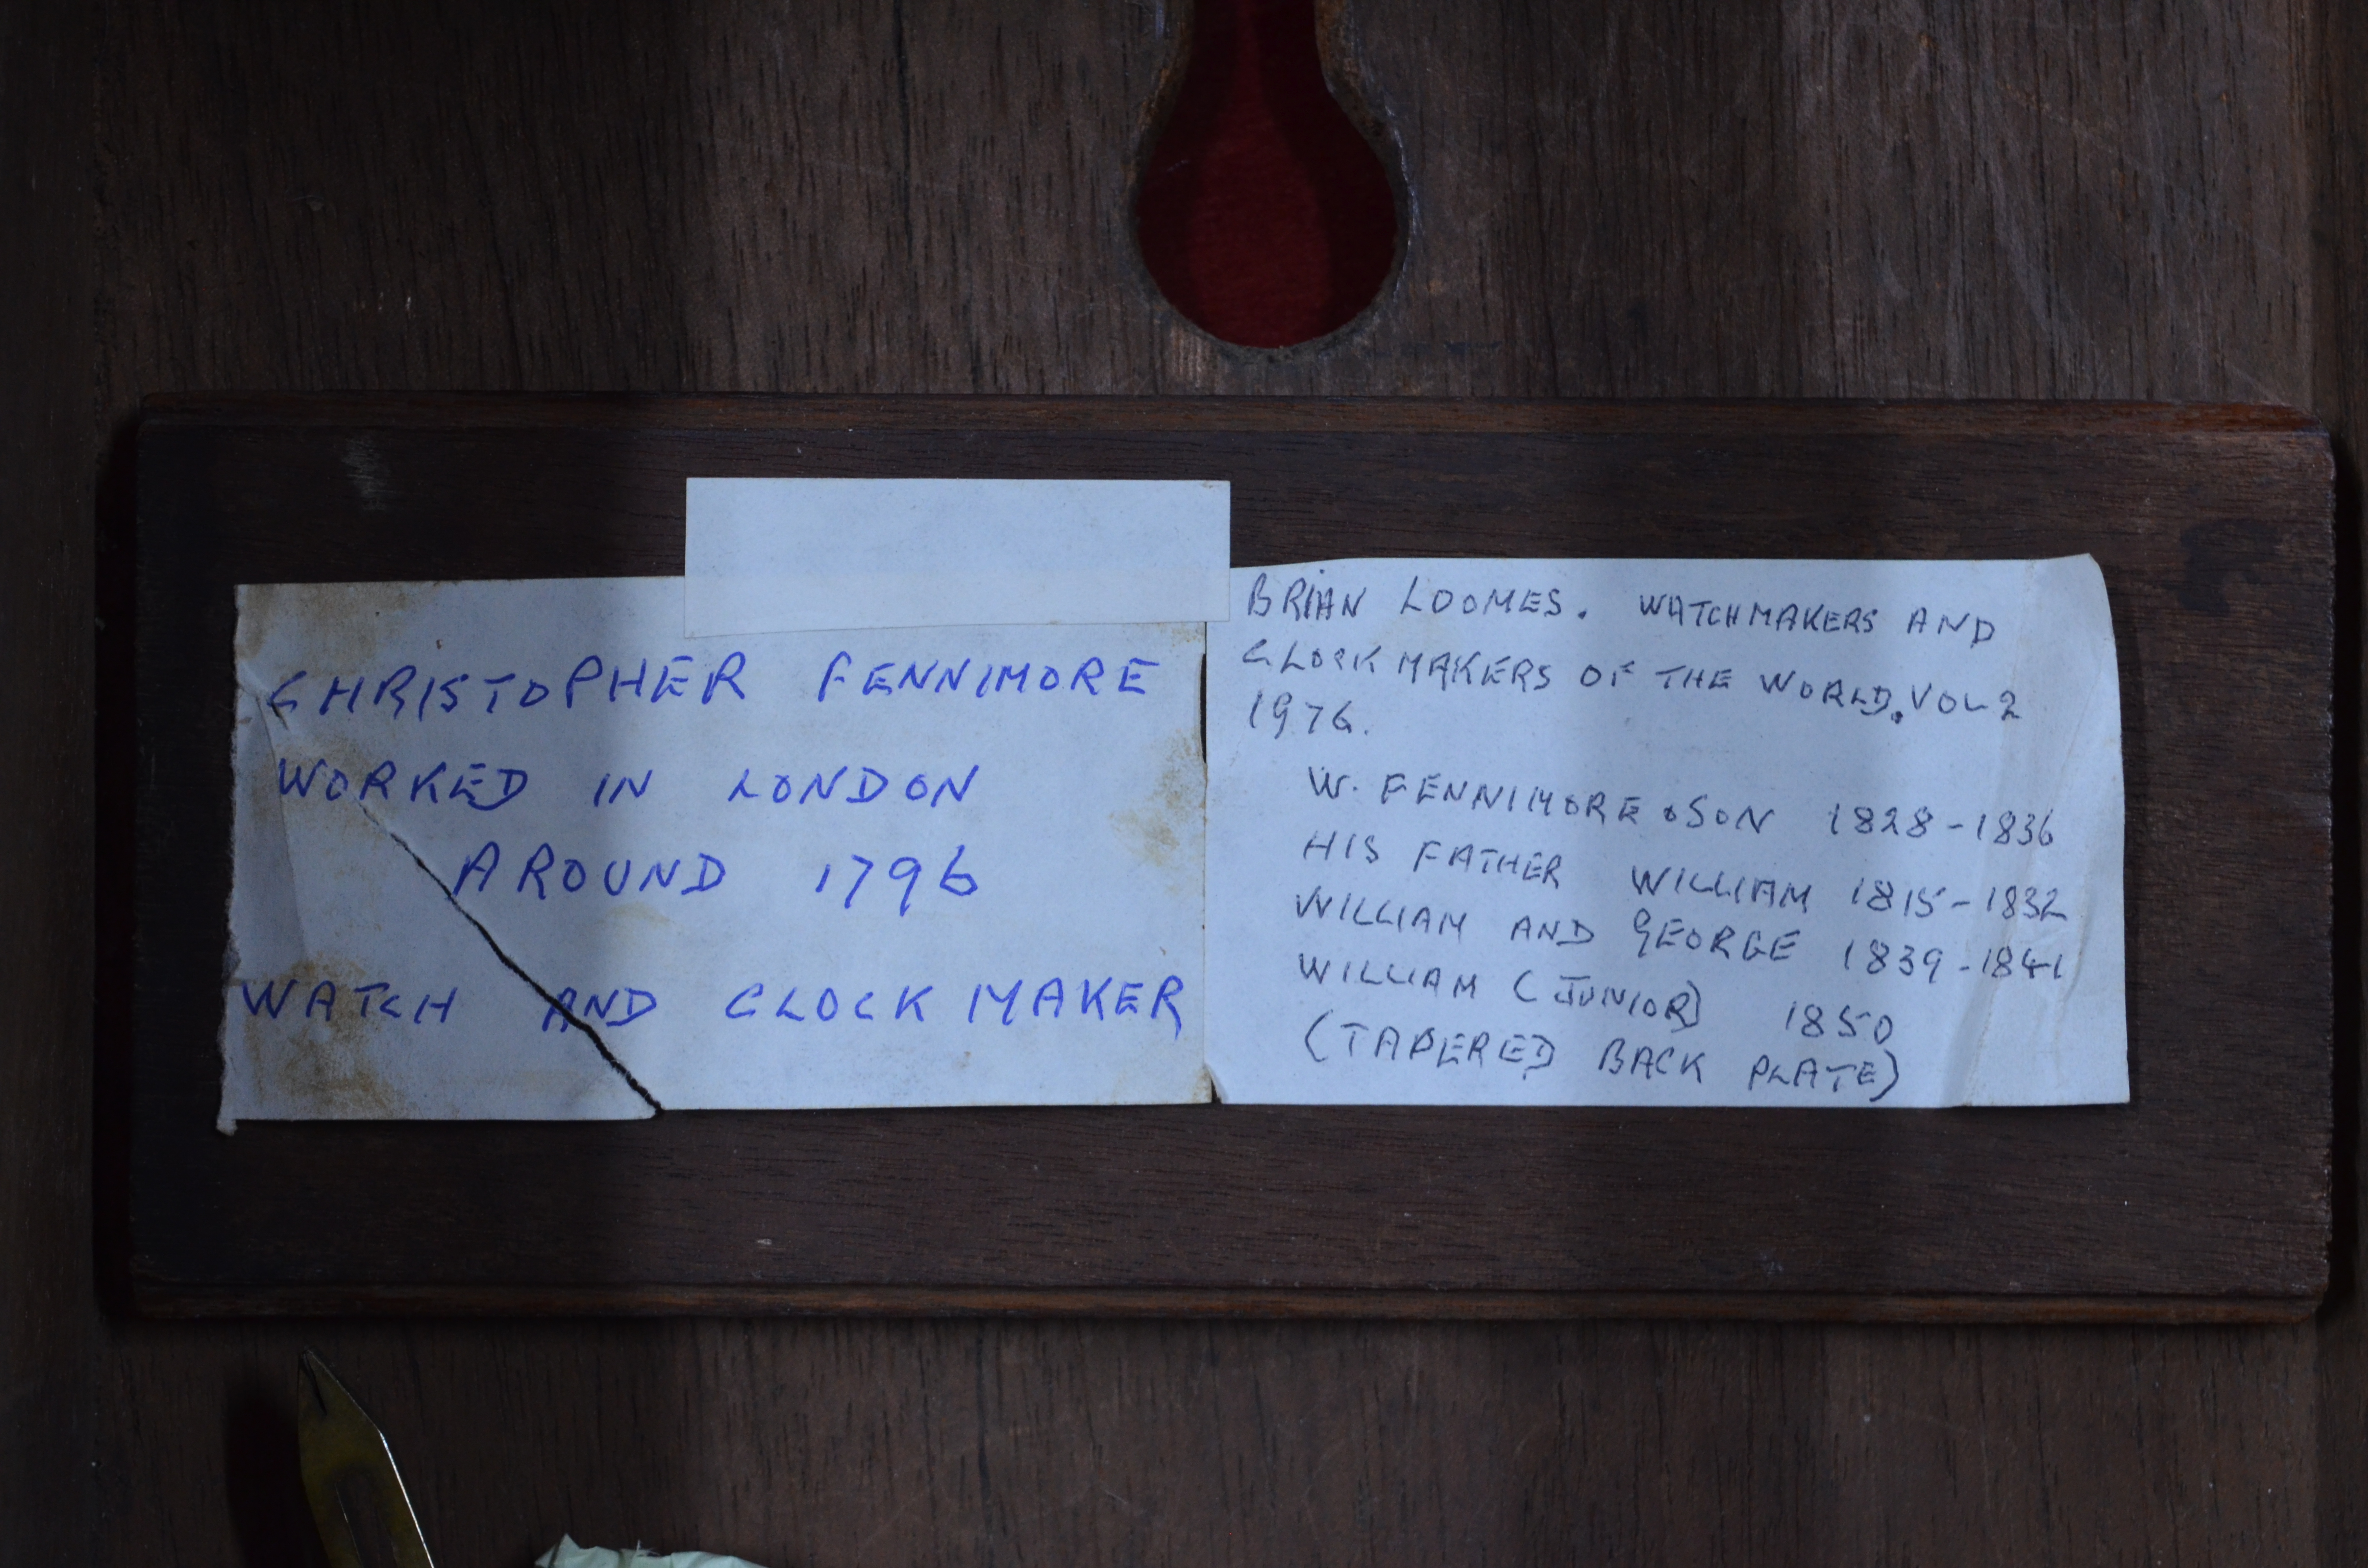 CHRISTOPHER FENNIMORE
WORKED IN LONDON
AROUND 1796
WATCH AND CLOCK MAKER
BRIAN LOOMES. WATCHMAKERS AND
CLOCKMAKERS OF THE WORLD. VOL 2
1976.
W. FENNIMORE & SON 1828-1836
HIS FATHER WILLIAM 1815-1832
WILLIAM AND GEORGE 1839-1841
WILLIAM (JUNIOR) 1850
(TAPERED BACK PLATE)